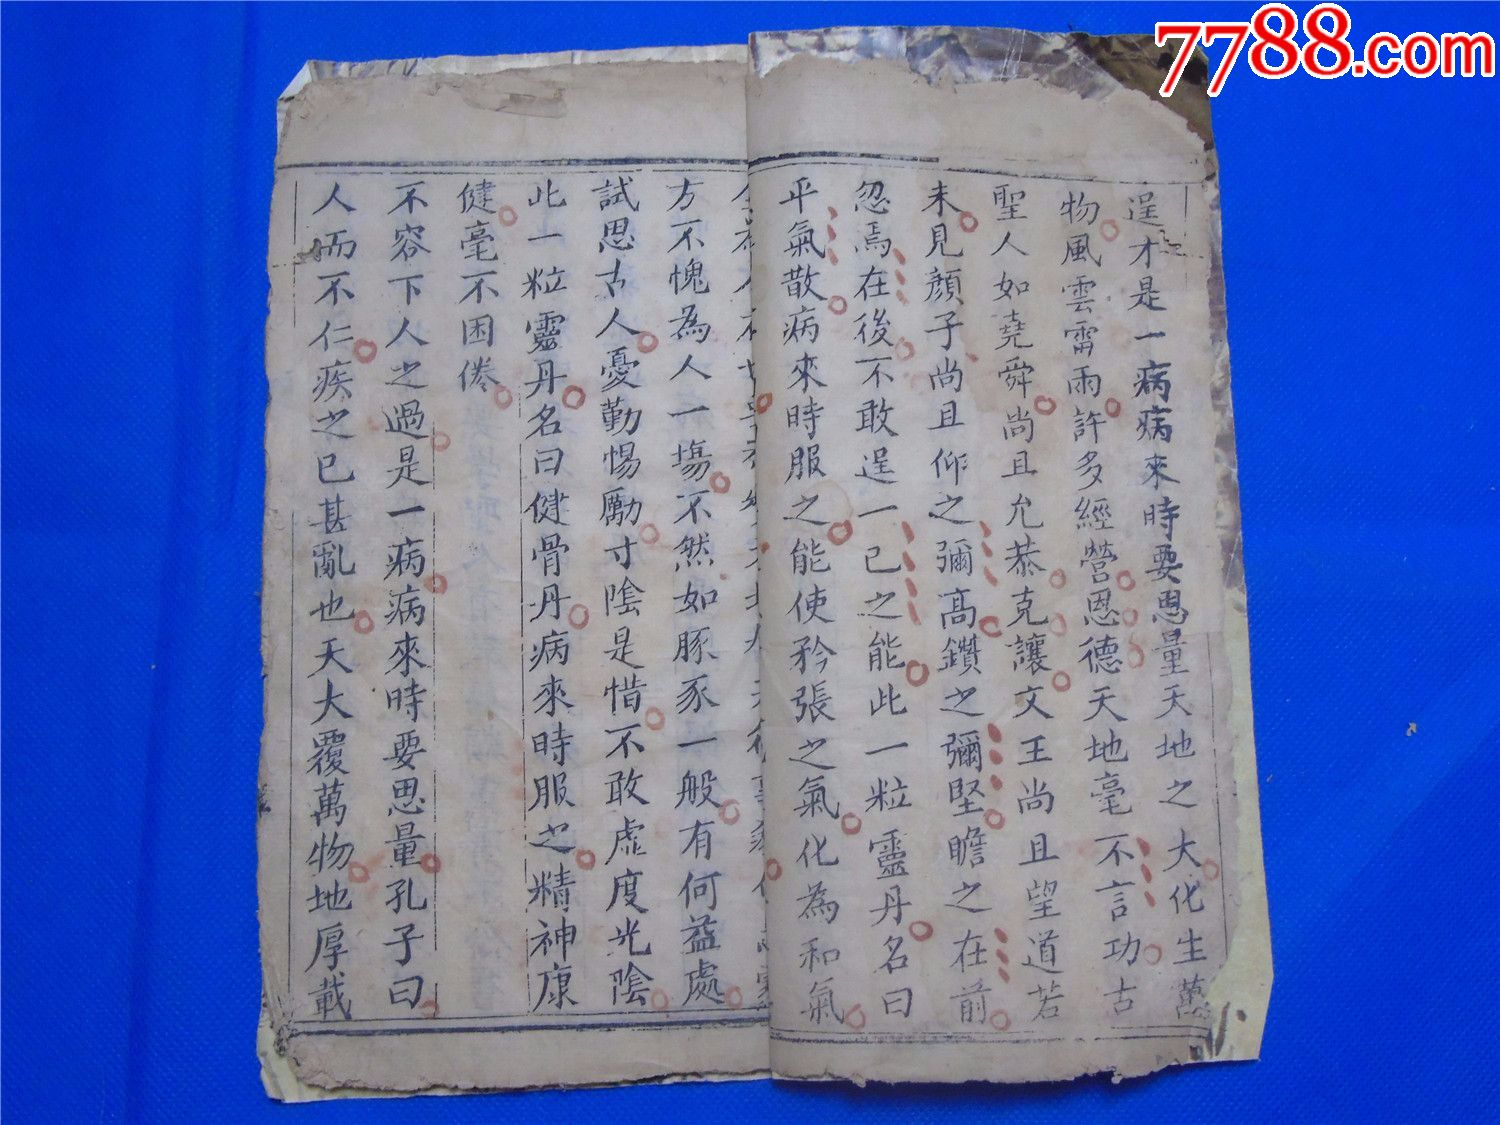 7788.com
逞才是一病病來時要思量天地之大化生萬
物風雲雷雨許多經營恩德天地毫不言功古
聖人如堯舜尚且允恭克讓文王尚且望道若
未見顏子尚且仰之彌高鑽之彌堅瞻之在前
忽焉在後不敢逞一己之能此一粒靈丹名曰
平氣散病來時服之能使矜張之氣化為和氣
方不愧為人一塲不然如豚豕一般有何益處
試思古人憂勤惕勵寸陰是惜不敢虛度光陰
此一粒靈丹名曰健骨丹病來時服之精神康
健毫不困倦
不容下人之過是一病病來時要思量孔子曰
人而不仁疾之已甚亂也天大覆萬物地厚載